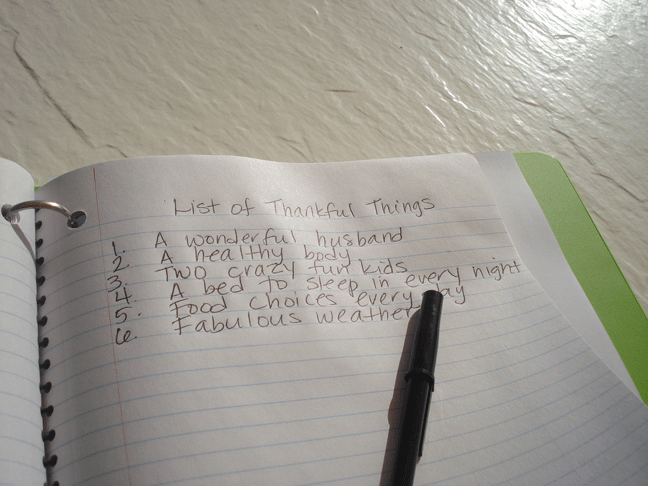 List of Thankful Things
1. A wonderful husband
2. A healthy body
3. Two crazy fun kids
4. A bed to sleep in every night
5. Food choices every day
6. Fabulous weather